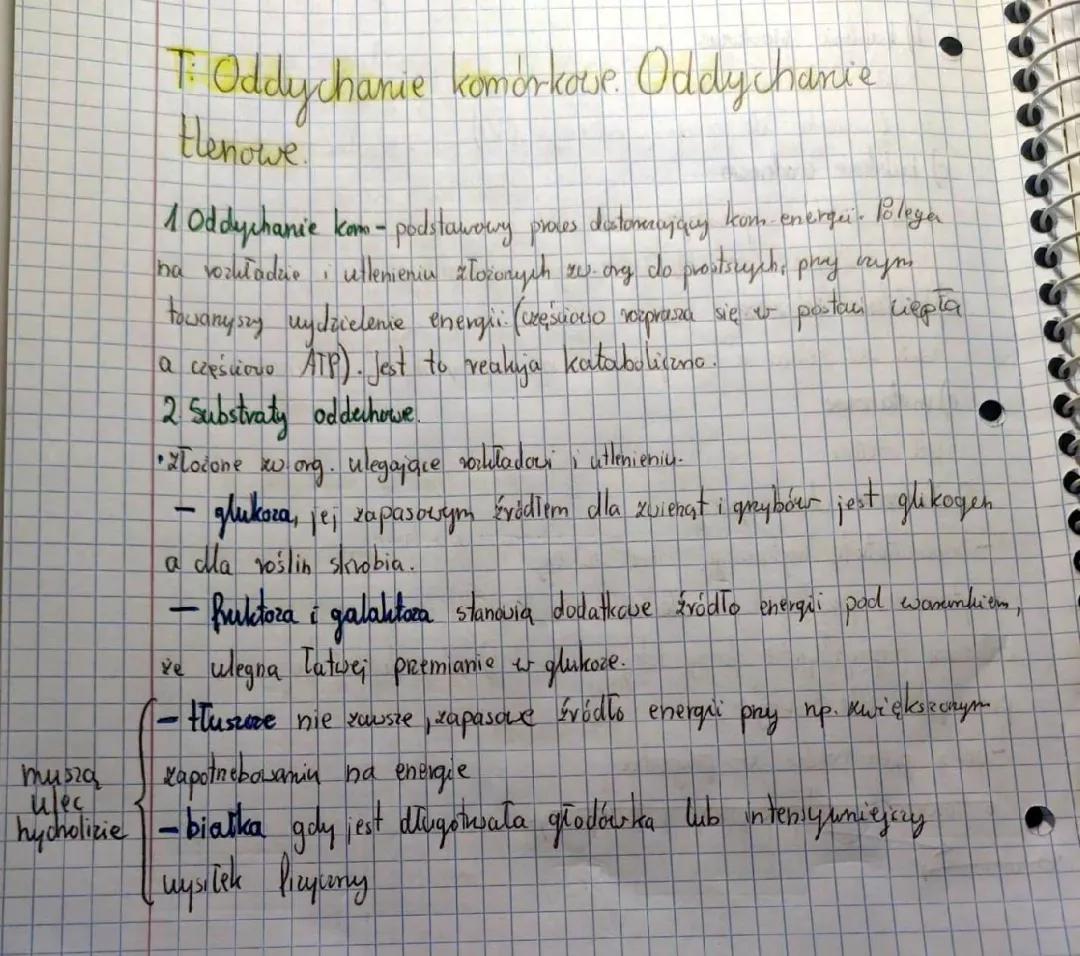 T: Oddychanie komórkowe. Oddychanie
tlenowe.
1 Oddychanie kom - podstawowy proces dostarczający kom. energii. Polega
na rozkładzie i utlenieniu złożonych zw. org do prostszych, przy czym
towarzyszy wydzielenie energii. (częściowo rozprasza się w postaci ciepła
a częściowo ATP). Jest to reakcja kataboliczna.
2 Substraty oddechowe.
• złożone zw. org. ulegające rozkładowi i utlenieniu.
- glukoza, jej zapasowym źródłem dla zwierząt i grzybów jest glikogen
a dla roślin skrobia.
- fruktoza i galaktoza stanowią dodatkowe źródło energii pod warunkiem,
że ulegną łatwej przemianie w glukozę.
- tłuszcze nie zawsze, zapasowe źródło energii przy np. zwiększonym
zapotrzebowaniu na energie
- białka gdy jest długotrwała głodówka lub intensywniejszy
wysiłek fizyczny
muszą
ulec
hydrolizie